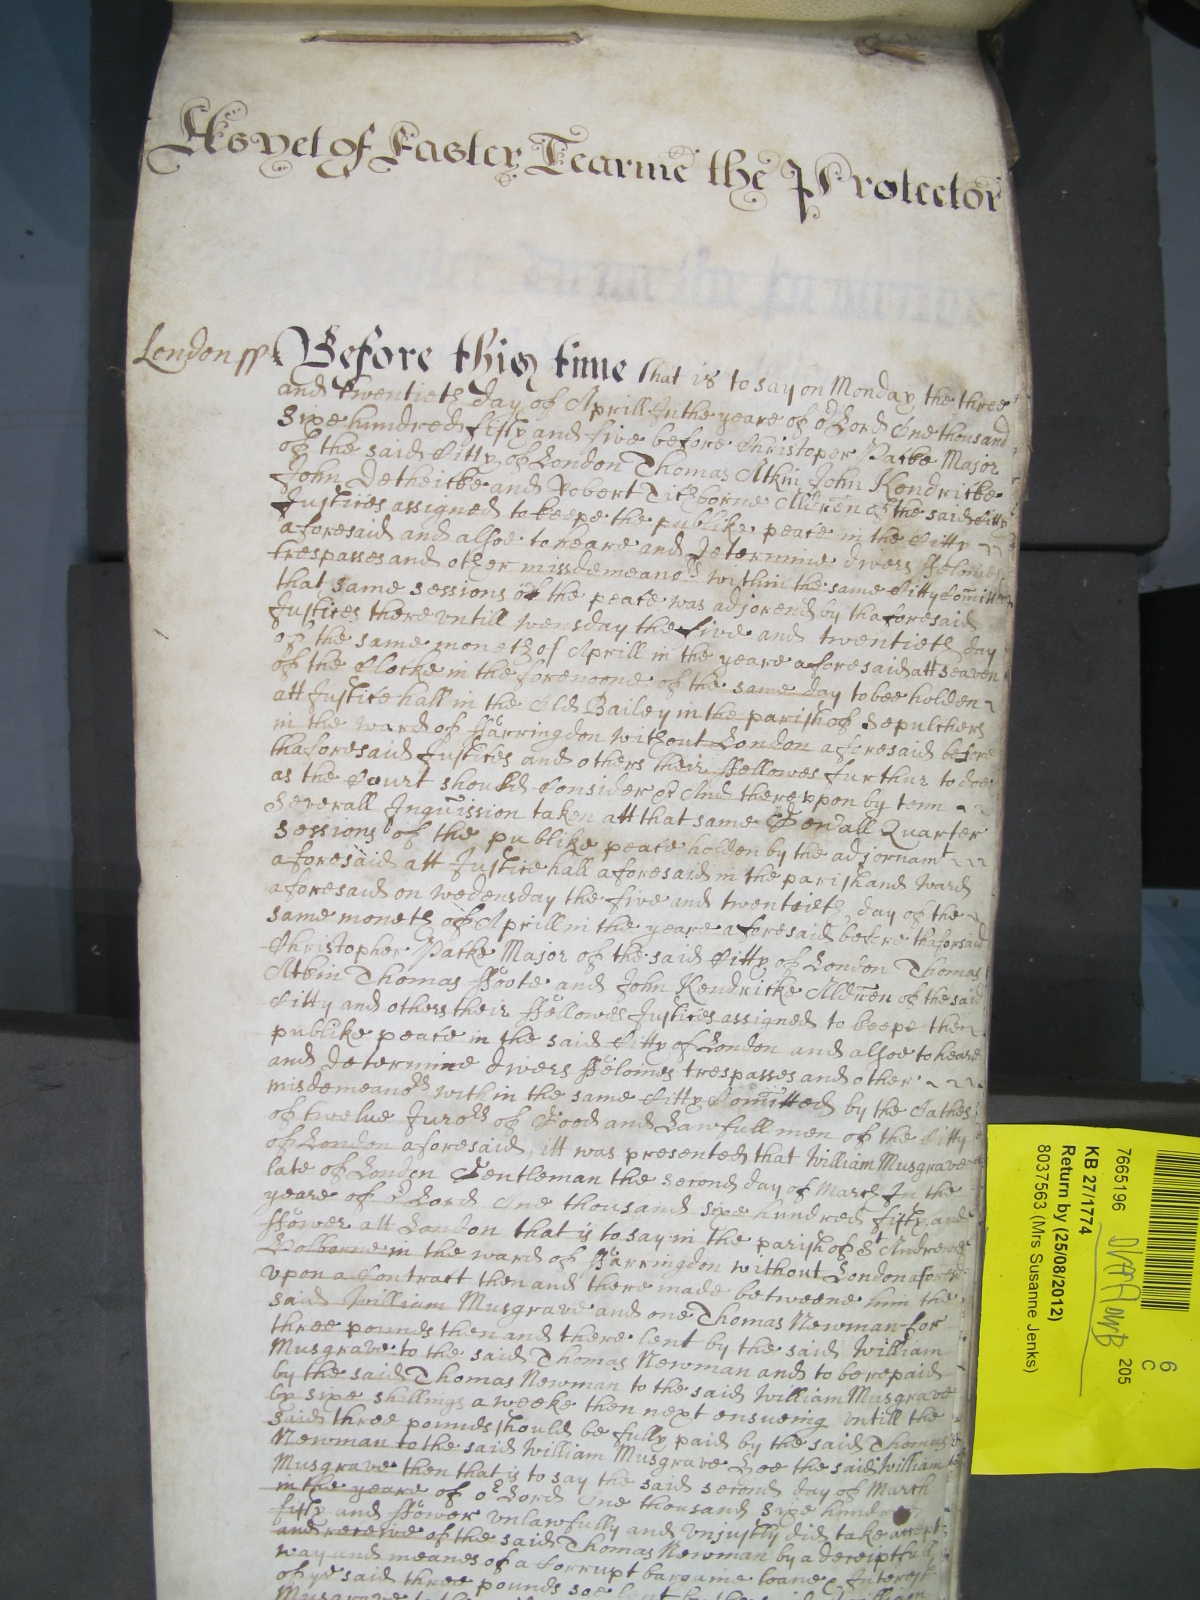 As yet of Easter Tearme the Protector
London ss Before this time that is to say on Monday the three
and twentieth day of Aprill In the yeare of or Lord One thousand
sixe hundred fifty and five before Christoper Packe Major
of the said Citty of London Thomas Atkin John Kendricke
John Dethicke and Robert Tichborne Aldren of the said Citty
Justices assigned to keepe the publike peace in the Citty
aforesaid and alsoe to heare and determine divers ffelonies
trespasses and other missdemeanors within the same Citty Comitted
that same sessions of the peace was adjorend by thaforesaid
Justices there vntill wensday the five and twentieth day
of the same moneth of Aprill in the yeare aforesaid att seaven
of the Clocke in the forenoone of the same day to bee holden
att Justice hall in the Old Bailey in the parish of Sepulchers
in the ward of ffarringdon without London aforesaid before
thaforesaid Justices and others their ffellowes furthur to doe
as the Court should Consider &c And therevpon by tenn
Severall Inquission taken att that same Genall Quarter
Sessions of the publike peace holden by the adjornamt
aforesaid att Justice hall aforesaid in the parish and ward
aforesaid on wedensday the five and twentieth day of the
same moneth of Aprill in the yeare aforesaid before thaforsaid
Christopher Packe Major of the said Citty of London Thomas
Atkin Thomas ffoote and John Kendricke Aldren of the said
Citty and others their ffellowes Justices assigned to keepe the
publike peace in the said Citty of London and alsoe to heare
and determine divers ffelonies trespasses and other
misdemeanors with in the same Citty Comitted by the Oathes
of twelue Jurors of Good and Lawfull men of the Citty
of London aforesaid itt was presented that William Musgrave
late of London Gentleman the second day of March In the
yeare of or Lord One thousand sixe hundred fifty and
ffower att London that is to say in the parish of St Andrewes
Holborne in the ward of ffarringdon without London aforesd
vpon a Contract then and there made betweene him the
said William Musgrave and one Thomas Newman for
three pounds then and there lent by the said William
Musgrave to the said Thomas Newman and to be repaid
by the said Thomas Newman to the said William Musgrave
by sixe shillings a weeke then next ensueing vntill the
said three pounds should be fully paid by the said Thomas
Newman to the said William Musgrave Hee the said William
Musgrave then that is to say the said second day of March
in the yeare of or Lord One thousand sixe hundred
fifty and ffower vnlawfully and vnjustly did take accept
and receive of the said Thomas Newman by a deceiptfull
way and meanes of a Corrupt bargaine loane & Interest
of ye said three pounds soe lent by the said William
Musgrave to the
7665196
KB 27/1774
Return by (25/08/2012)
8037563 (Mrs Susanne Jenks)
6
C
205